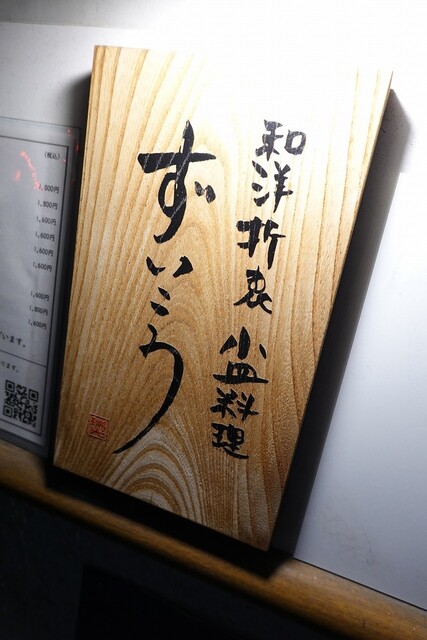 和洋折衷 小皿料理
ずいこう
(税込)
,000円
1,800円
1,600円
1,600円
1,600円
1,600円
1,600円
1,800円
1,600円
います。
ります。